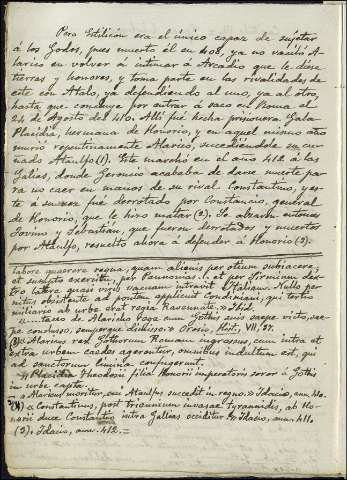 Pero Estilicón era el único capaz de sujetar
á los Godos, pues muerto él en 408, ya no vaciló A-
larico en volver á intimar á Arcadio que le diese
tierras y honores, y toma parte en las rivalidades de
este con Atalo, ya defendiendo al uno, ya al otro,
hasta que concluye por entrar á saco en Roma el
24 de Agosto del 410. Allí fué hecha prisionera Gala
Placidia, hermana de Honorio, y en aquel mismo año
murió repentinamente Alarico, sucediéndole su cu-
ñado Ataulfo (1). Este marchó en el año 412 á las
Galias, donde Geroncio acababa de darse muerte pa-
ra no caer en manos de su rival Constantino, y es-
te á su vez fué derrotado por Constancio, general
de Honorio, que le hizo matar (2). Se alzaron entonces
Jovino y Sebastián, que fueron derrotados y muertos
por Ataulfo, resuelto ahora á defender á Honorio (3).
labore quaerere regna, quam alienis per otium subiacere;
et sumpto exercitu, per Pannonias
et per Sirmium dex-
tro latere quasi viris vacuam intravit Italiam. Nullo pe-
nitus obsistente ad pontem applicuit Condiniani, qui tertio
miliario ab urbe erat regia Ravennate." Ibid.
"Taceo de Alarico rege cum Gothis suis saepe victo, sae-
pe concluso, semperque dimisso." Orosio, Hist., VII, 37.
(1) "Alaricus rex Gothorum Romam ingressus, cum intra et
extra urbem caedes agerentur, omnibus indultum est, qui
ad sanctorum limina confugerunt.
"Placidia Theodosii filia Honorii imperatoris soror á Gothis
in urbe capta.
"Alaricus moritur, cui Ataulfus succedit in regno." Idacio, ann. 410.
(2) "Constantinus, post triennium invasae tyrannidis, ab Ho-
norii duce Constantio intra Gallias occiditur." Idacio, ann. 411.
(3). Idacio, ann. 412.